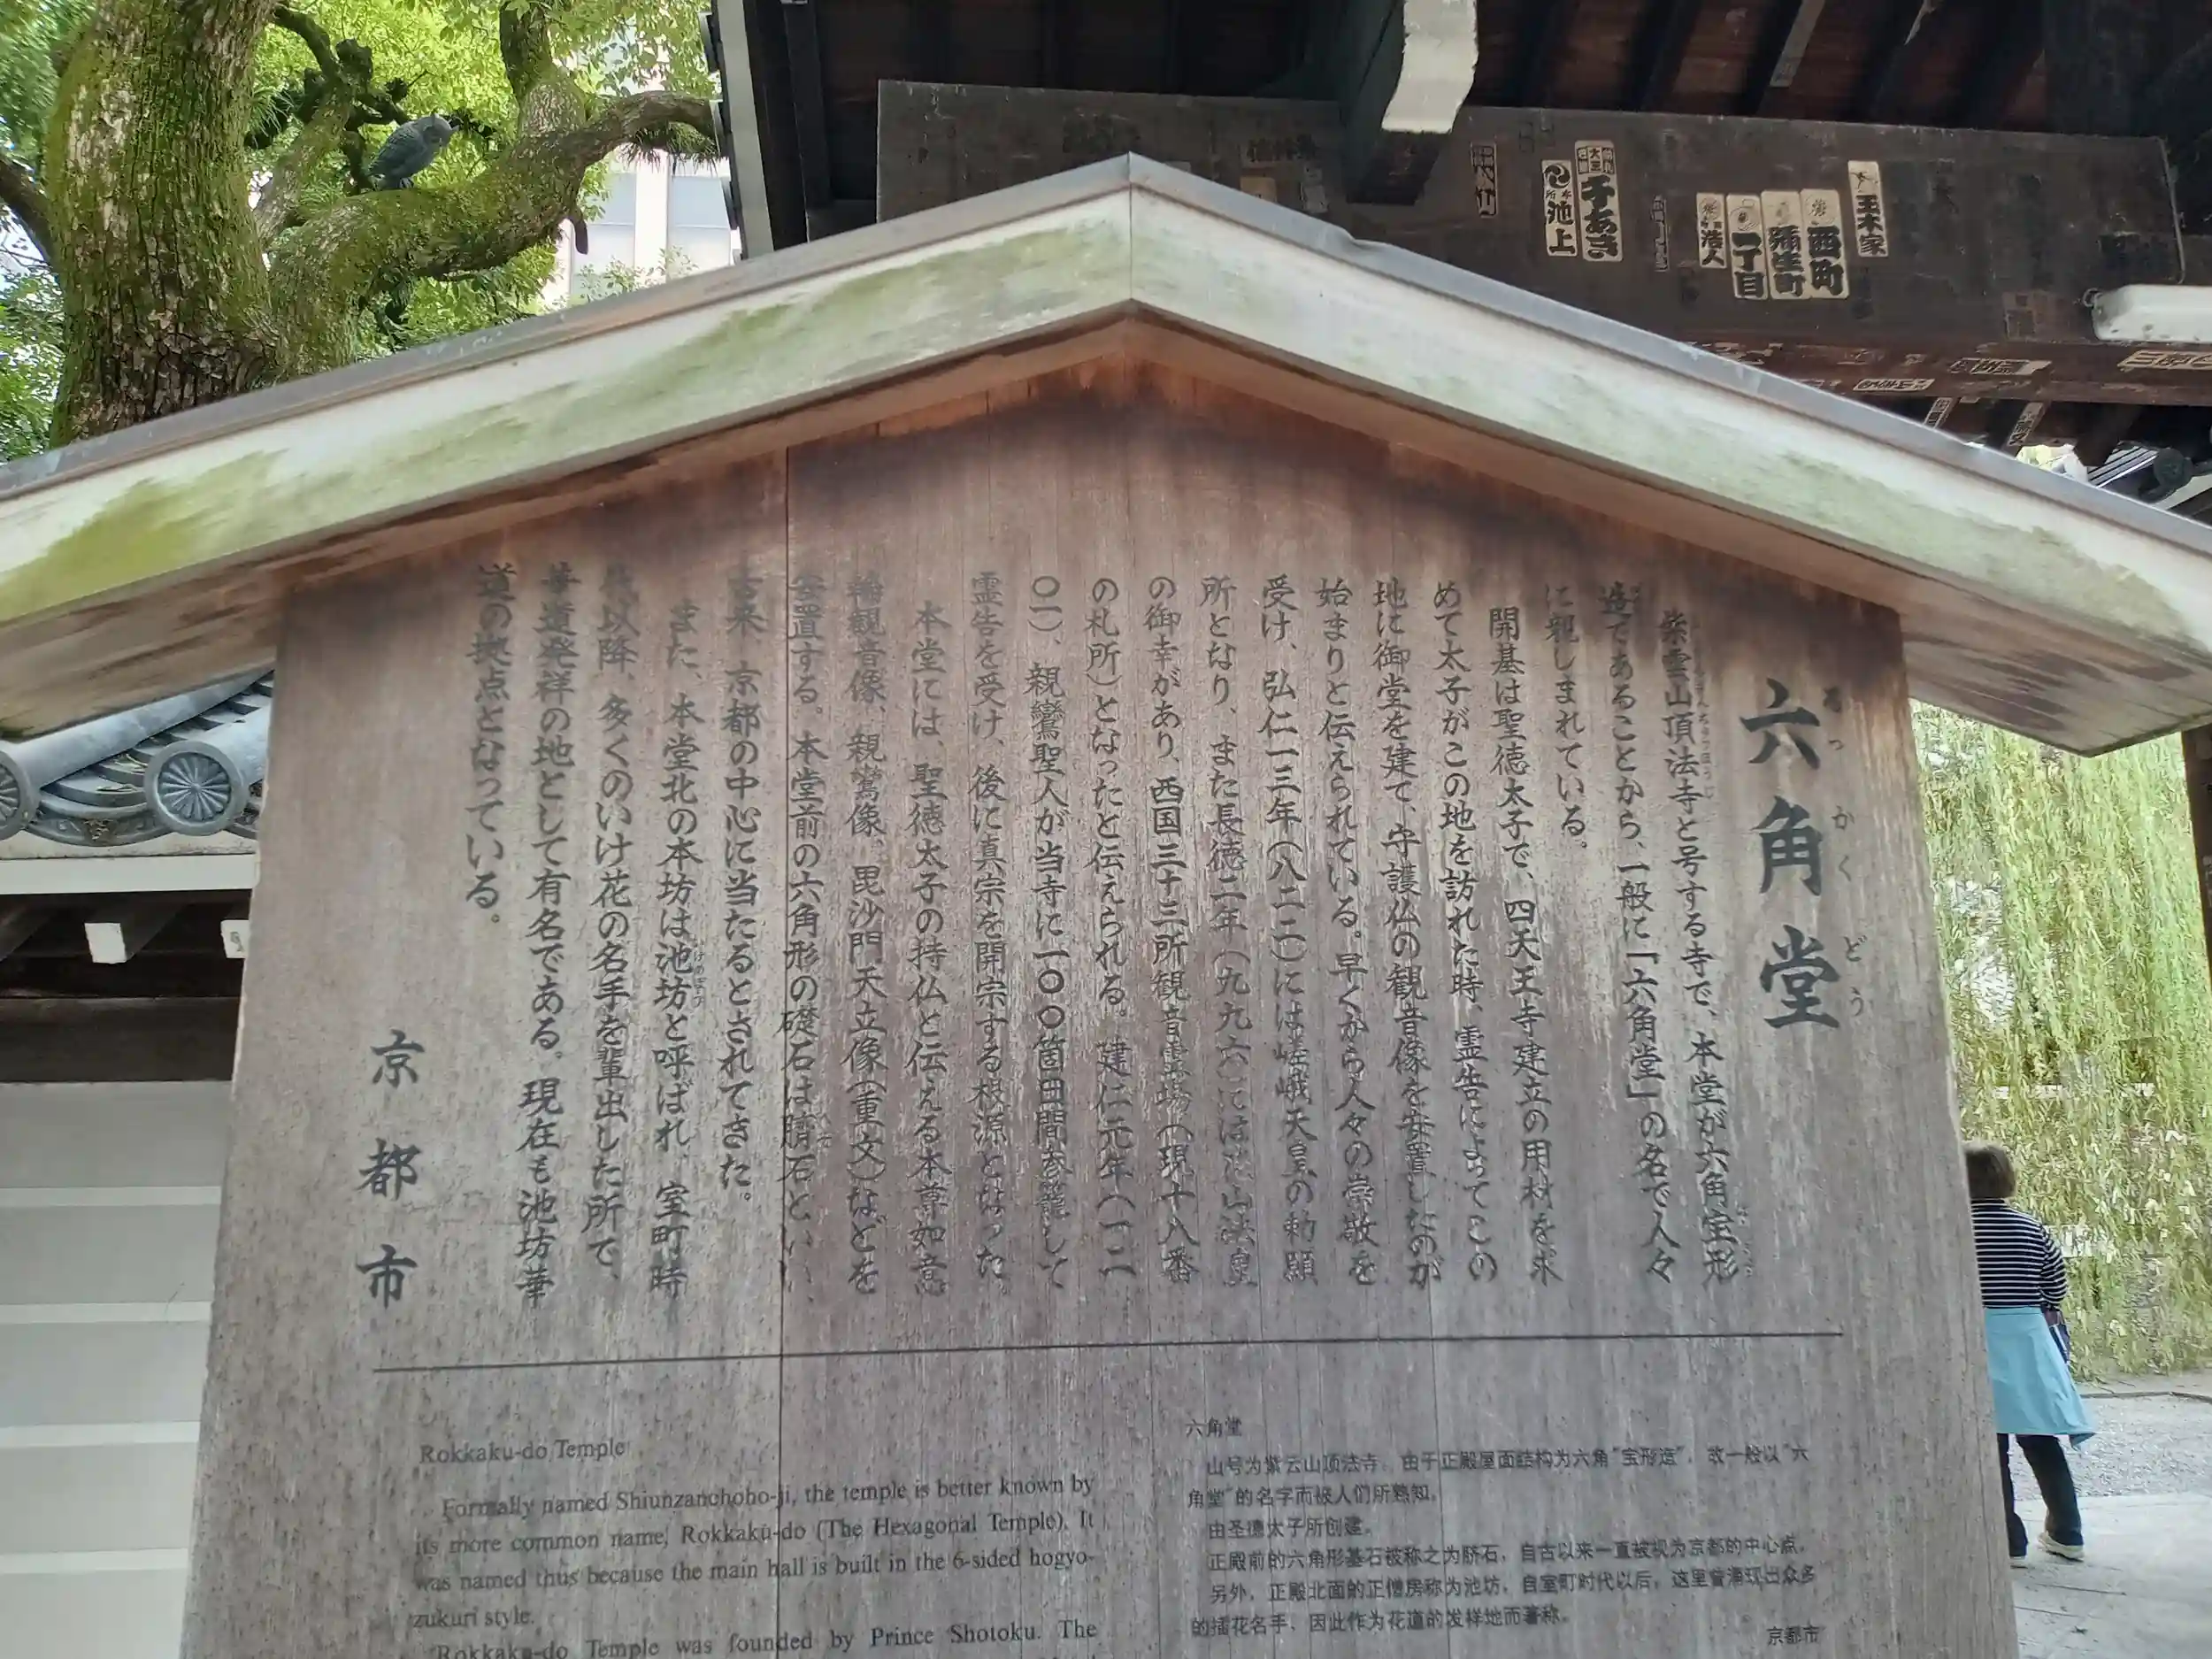 六角堂
ろっかくどう
紫雲山頂法寺と号する寺で、本堂が六角宝形
造であることから、一般に「六角堂」の名で人々
に親しまれている。
開基は聖徳太子で、四天王寺建立の用材を求
めて太子がこの地を訪れた時、霊告によってこの
地に御堂を建て、守護仏の観音像を安置したのが
始まりと伝えられている。早くから人々の崇敬を
受け、弘仁一三年(八二二)には嵯峨天皇の勅願
所となり、また長徳二年(九九六)には花山法皇
の御幸があり、西国三十三所観音霊場(現十八番
の札所)となったと伝えられる。建仁元年(一二
〇一)、親鸞聖人が当寺に一〇〇箇日間参籠して
霊告を受け、後に真宗を開宗する根源となった。
本堂には、聖徳太子の持仏と伝える本尊如意
輪観音像、親鸞像、毘沙門天立像(重文)などを
安置する。本堂前の六角形の礎石は臍石といい、
古来、京都の中心に当たるとされてきた。
また、本堂北の本坊は池坊と呼ばれ、室町時
代以降、多くのいけ花の名手を輩出した所で、
華道発祥の地として有名である。現在も池坊華
道の拠点となっている。
京都市
Rokkaku-do Temple
Formally named Shiunzanchoho-ji, the temple is better known by
its more common name, Rokkaku-do (The Hexagonal Temple). It
was named thus because the main hall is built in the 6-sided hogyo-
zukuri style.
Rokkaku-do Temple was founded by Prince Shotoku. The
六角堂
山号为紫云山顶法寺，由于正殿屋面结构为六角“宝形造”，故一般以“六
角堂”的名字而被人们所熟知。
由圣德太子所创建。
正殿前的六角形基石被称之为脐石，自古以来一直被视为京都的中心点。
另外，正殿北面的正僧房称为池坊，自室町时代以后，这里曾涌现出众多
的插花名手，因此作为花道的发祥地而著称。
京都市
池上
千あき
浩人
一丁目
弥生町
西町
玉木家